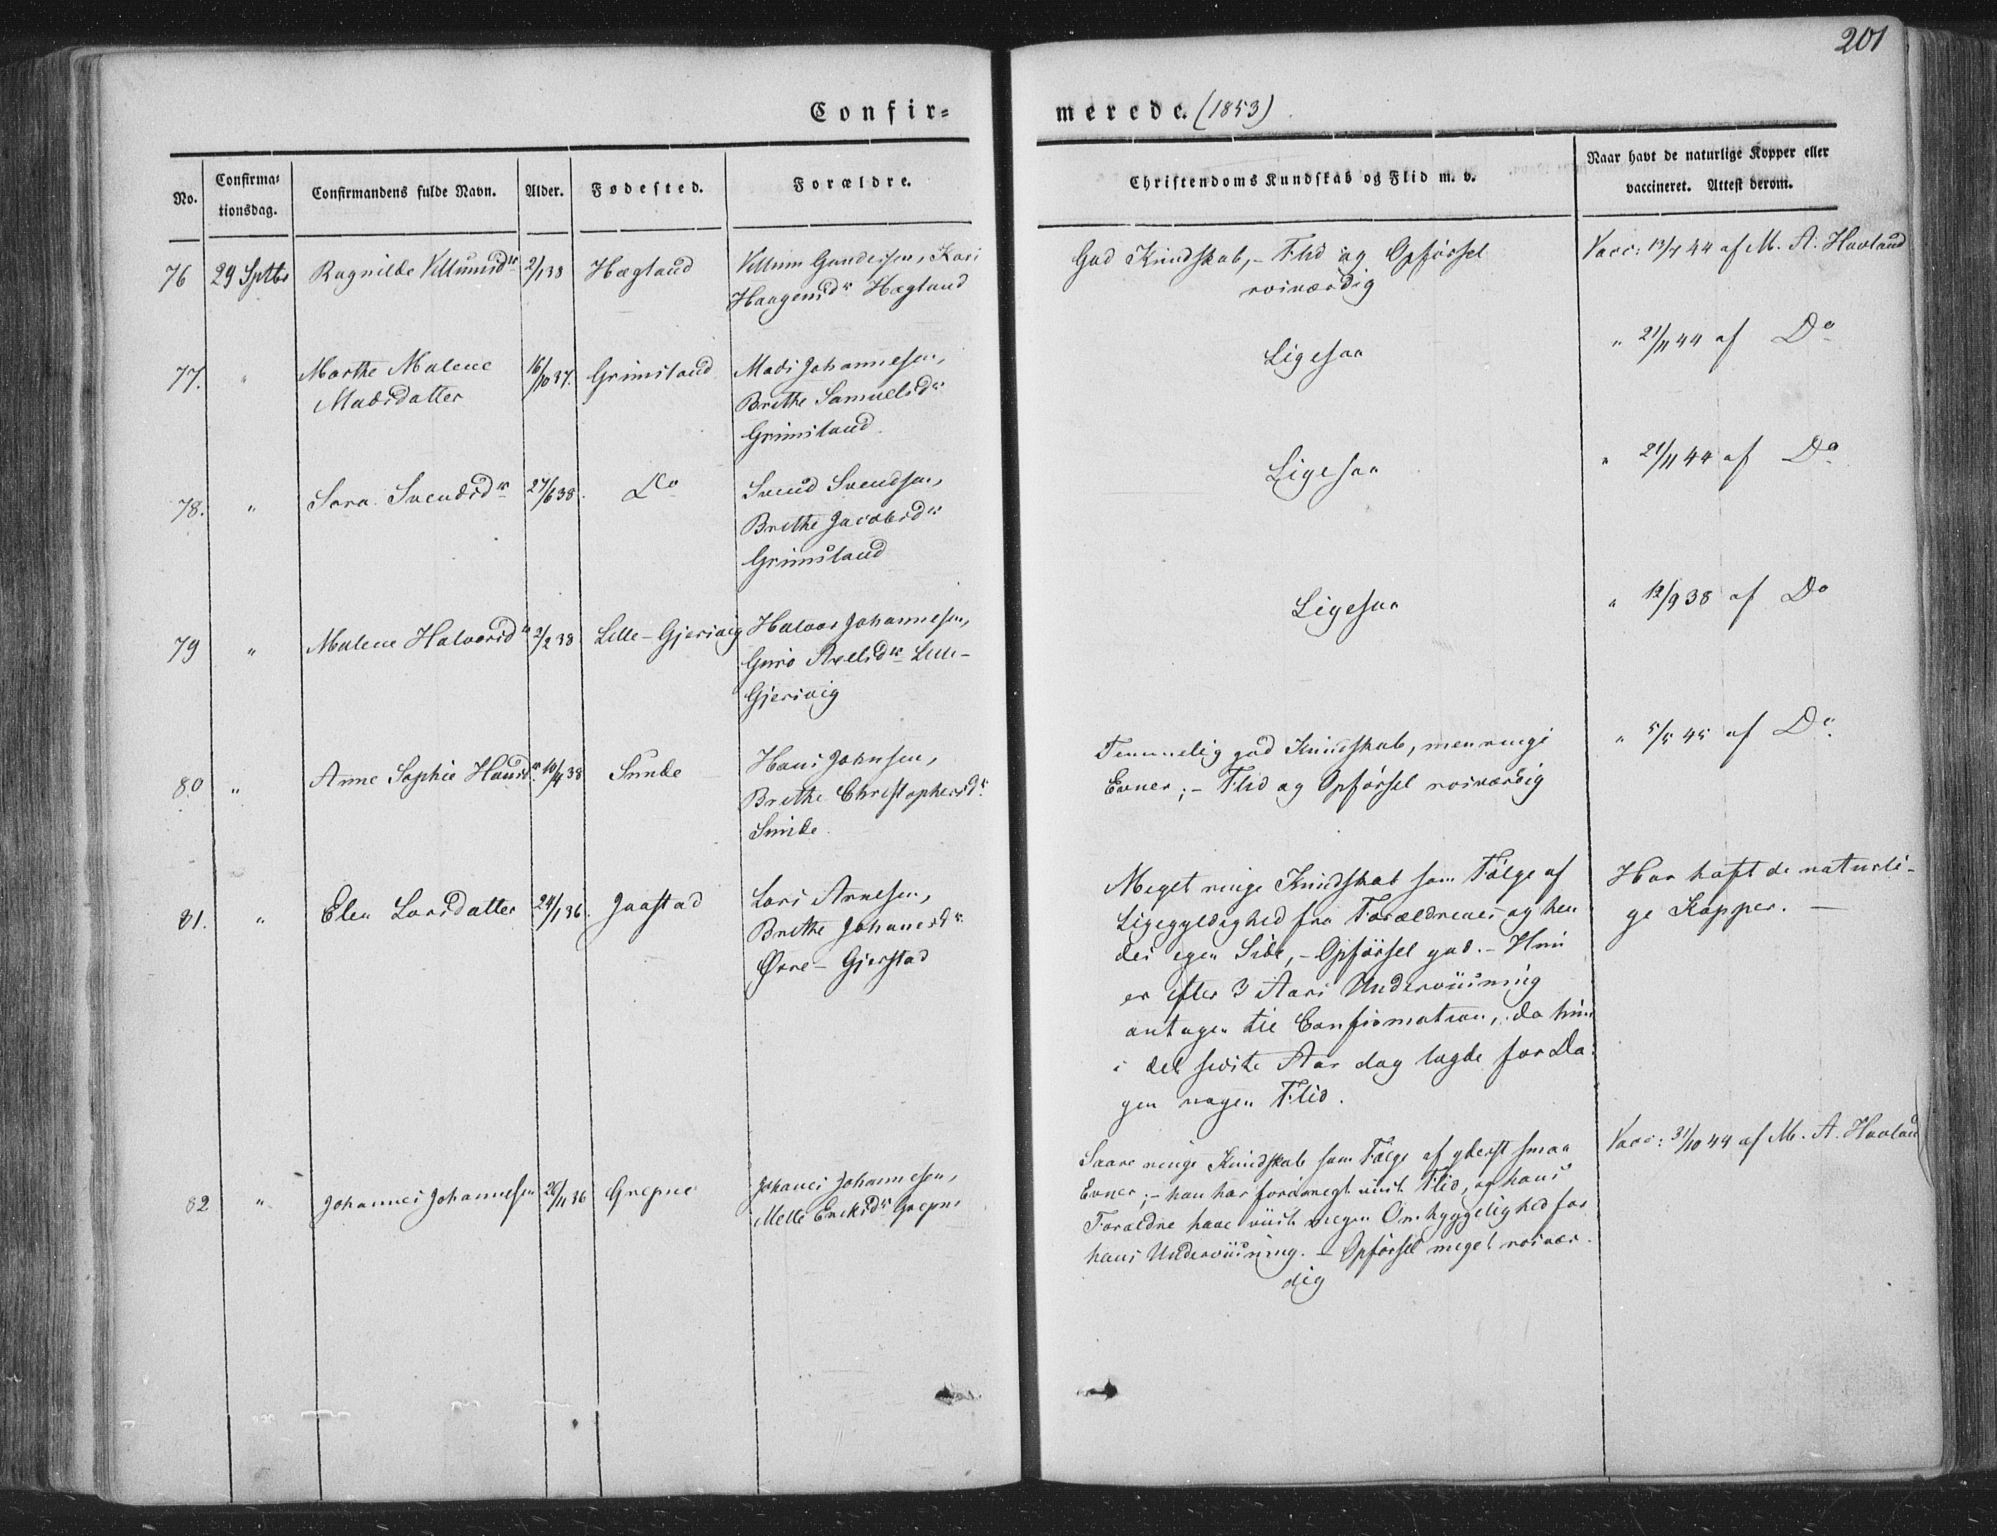 201
Confir= merede. (1853)
No.
Confirma=
tionsdag.
Confirmandens fulde Navn.
Alder.
Fødested.
Forældre.
Christendoms Kundskab og Flid m. v.
Naar havt de naturlige Kopper eller
vaccineret. Attest derom.
76 29 Sptbr Ragnilde Villumsdr 2/1 38 Hægland
Villum Gundersen, Kari
Haagensdr Hægland
God Kundskab, - Flid og Opførsel
rosværdig
Vacc: 13/7 44 af M. A. Havland
77. " Marthe Malene
Madsdatter
16/10 37. Grimsland
Mads Johannesen,
Brithe Samuelsdr
Grimsland.
Ligesaa
" 21/11 44 af Do
78. " Sara Svendsdr 27/6 38. Do
Svend Svendsen,
Brithe Jacobsdr
Grimsland
Ligesaa
" 21/11 44 af Do
79 " Malene Halvorsdr 2/2 38 Lille-Gjersvig
Halvor Johannesen,
Guro Axelsdr Lille-
Gjersvig
Ligesaa
" 12/9 38 af Do
80 " Anne Sophie Hansdr 10/4 38 Sunde
Hans Johnsen,
Brithe Christophersdr
Sunde.
Temmelig god Kundskab, men ringe
Evner; - Flid og Opførsel rosværdig
" 5/5 45 af Do
81. " Elen Larsdatter 24/1 36. Jaastad
Lars Arnesen,
Brithe Johannesdr
Øvre-Gjerstad
Meget ringe Kundskab som Følge af
Ligegyldighed fra Forældrenes og hen
des egen Side, - Opførsel god. - Hun
er efter 3 Aars Underviisning
antagen til Confirmation, da hun
i det sidste Aar dog lagde for Da-
gen nogen Flid.
Har haft de naturli-
ge Kopper. -
82 " Johannes Johannesen 26/11 36 Grepne
Johannes Johannesen,
Mette Eriksdr Grepne
Saare ringe Kundskab som Følge af yderst smaa
Evner; - han har forøvrigt viist Flid, og hans
Forældre have viist megen Omhyggelighed for
hans Underviisning. - Opførsel meget rosvær-
dig
Vacc: 31/10 44 af M. A. Havland